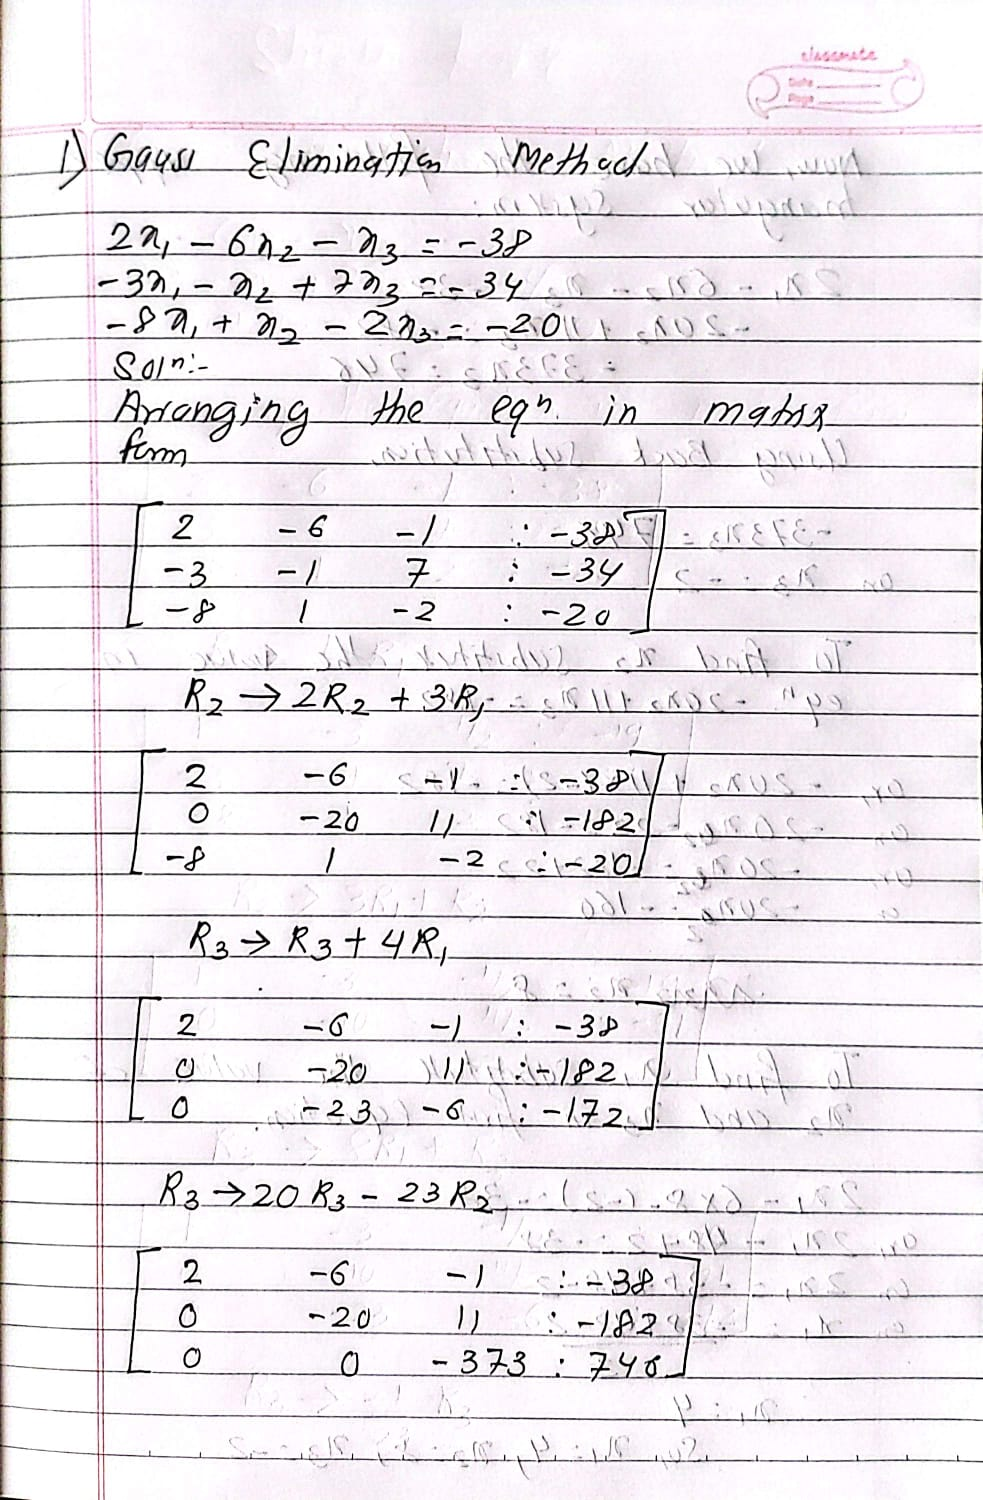 classmate
Date
Page
1) Gauss Elimination Method
2x₁ - 6x₂ - x₃ = -38
-3x₁ - x₂ + 7x₃ = -34
-8x₁ + x₂ - 2x₃ = -20
Solⁿ:-
Arranging the eqⁿ. in matrix
form
2 -6 -1 : -38
-3 -1 7 : -34
-8 1 -2 : -20
R₂ → 2R₂ + 3R₁
2 -6 -1 : -38
0 -20 11 : -182
-8 1 -2 : -20
R₃ → R₃ + 4R₁
2 -6 -1 : -38
0 -20 11 : -182
0 -23 -6 : -172
R₃ → 20R₃ - 23R₂
2 -6 -1 : -38
0 -20 11 : -182
0 0 -373 : 746